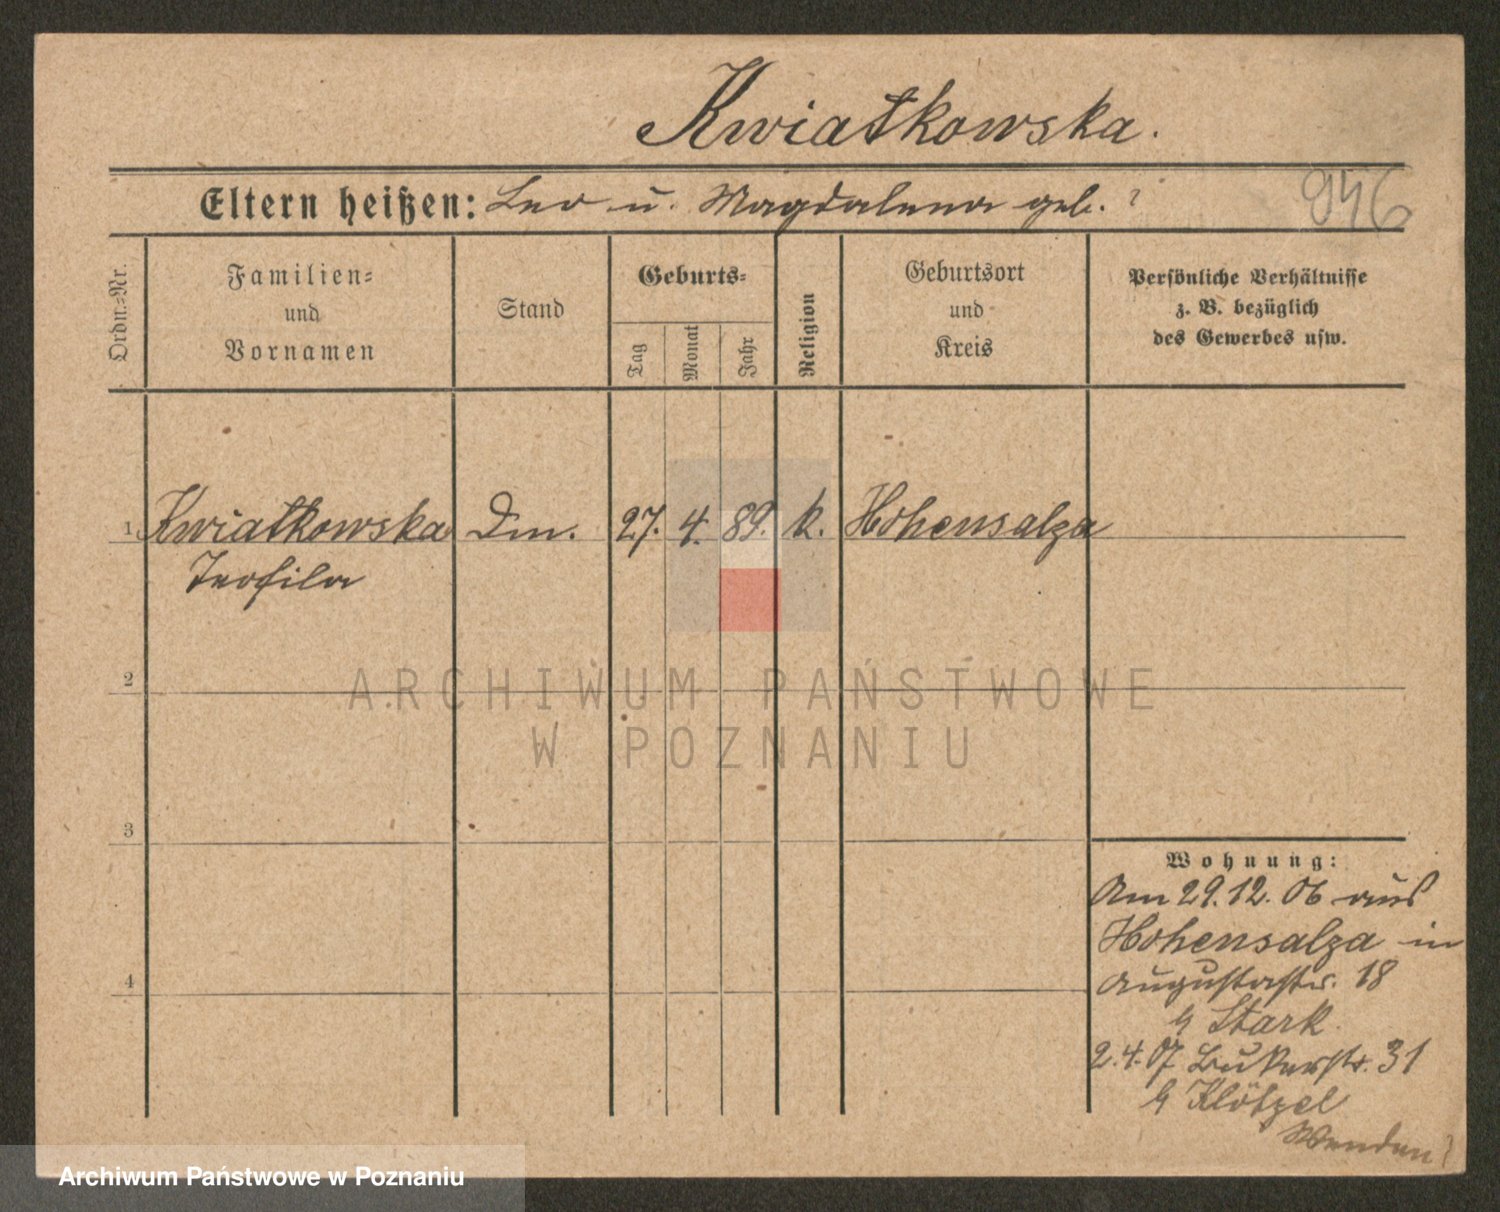 Kwiatkowska.
Eltern heißen: Leo u. Magdalena geb. ?
946
Ordn.=Nr.
Familien=
und
Vornamen
Stand
Geburts=
Tag
Monat
Jahr
Religion
Geburtsort
und
Kreis
Persönliche Verhältnisse
z. B. bezüglich
des Gewerbes usw.
1 Kwiatkowska Dm. 27. 4. 89. k. Hohensalza
Teofila
2
ARCHIWUM PAŃSTWOWE
W POZNANIU
3
Wohnung:
Am 29.12.06 aus
Hohensalza in
4
Augustastr. 18
Stark.
2.4.07 Bukerstr. 31
Klötzel
Wenden!
Archiwum Państwowe w Poznaniu